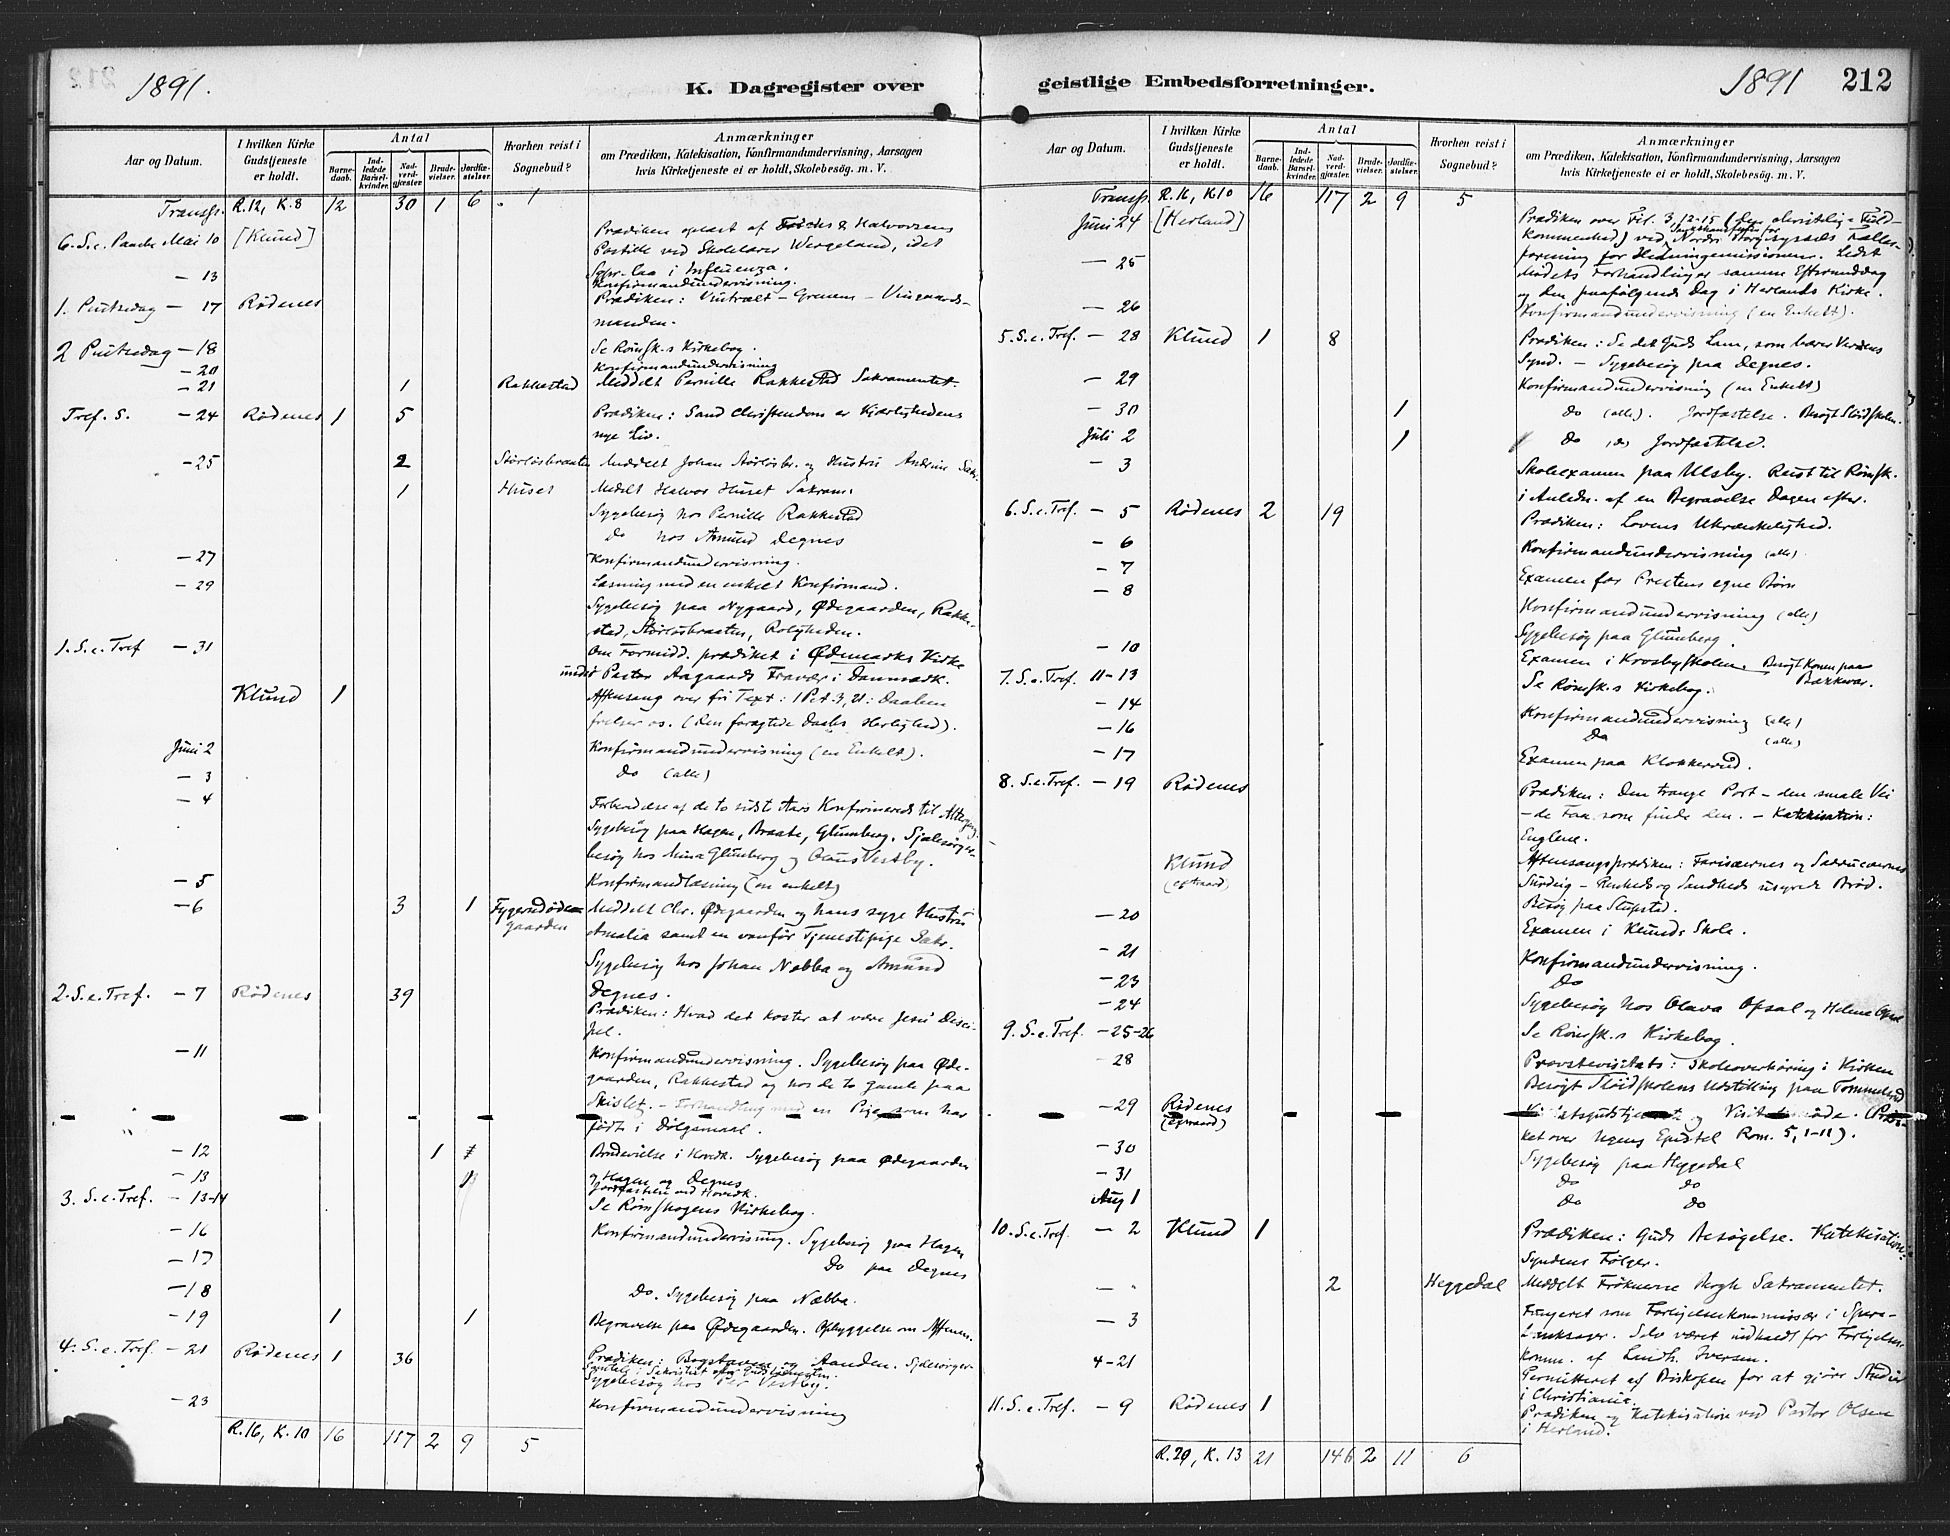 1891.
K. Dagregister over
Aar og Datum.
I hvilken Kirke Gudstjeneste er holdt.
Antal
Barne-daab.
Ind-ledede Barsel-kvinder.
Nad-verd-gjæster
Brude-vielser.
Jordfæ-stelser.
Hvorhen reist i Sognebud?
Anmærkninger
om Prædiken, Katekisation, Konfirmandundervisning, Aarsagen
hvis Kirketjeneste ei er holdt, Skolebesøg. m. V.
Transp. R.12, K.8 12 30 1 6 1
6. S. e. Paaske Mai 10 [Klund] Prædiken oplæst af & Halvorsens
Postille ved Skolelærer Wergeland, idet
Sogr. laa i Influenza.
— 13 Konfirmandundervisning.
1. Pintsedag — 17 Rødenes Prædiken: Vintræet – Grenen – Vingaards-
manden.
2 Pintsedag — 18 Se Rømsk.s Kirkebog.
— 20 Konfirmandundervisning
— 21 1 Rakkestad Meddelt Pernille Rakkestad Sakramentet.
Tref. S. — 24 Rødenes 1 5 Prædiken: Sand Christendom er Kjærlighedens
nye Liv.
— 25 2 Størlösbraaten Meddelt Johan Størlösbr. og Hustru Andrine Sakr.
1 Huset Meddelt Halvor Huset Sakram:
Sygebesøg hos Pernille Rakkestad
Do hos Amund Degnes
— 27 Konfirmandundervisning.
— 29 Læsning med en enkelt Konfirmand.
Sygebesøg paa Nygaard, Ødegaarden, Rakke-
stad, Størlösbraaten, Roligheden.
1. S. e. Tref — 31 Om Formidd. prædiket i Ødemarks Kirke
under Pastor Aagaards Fravær i Danmark.
Klund 1 Aftensang over fri Text: 1 Pet. 3, 21: Daaben
frelser os. (Den foragtede Daabs Herlighed).
Juni 2 Konfirmandundervisning (en Enkelt).
— 3 Do (alle)
— 4 Forberedelse af de to sidst Aars Konfirmerede til Altergang.
Sygebesøg paa Hagen, Braate, Glumberg. Sjælesørger-
besøg hos Mina Glumberg og Olaus Vestby.
— 5 Konfirmandlæsning (en enkelt)
— 6 3 1 gaarden Meddelt Chr. Ødegaarden og hans syge Hustru
Amalia samt en vanfør Tjenestepige Sakr.
Sygebesøg hos Johan Næbba og Amund
Degnes.
2. S. e. Tref. — 7 Rødenes 39 Prædiken: Hvad det koster at være Jesu Disci-
pel.
— 11 Konfirmandundervisning. Sygebesøg paa Øde-
gaarden, Rakkestad og hos de to gamle paa
Skislet. – Forhandling med en Pige som har
født i Dølgsmaal.
— 12 1 Brudevielse i Hovedk. Sygebesøg paa Ødegaarden
og Hagen og Degnes
— 13 Jordfæstelse ved Hovedk.
3. S. e. Tref. — 13-14 Se Rømskogens Kirkebog.
— 16 Konfirmandundervisning. Sygebesøg paa Hagen
— 17 Do paa Degnes
— 18 Do. Sygebesøg paa Næbba.
— 19 1 1 Begravelse paa Ødegaarden. Opbyggelse om Aftenen.
4. S. e. Tref. — 21 Rødenes 1 36 Prædiken: Bogstaven og Aanden. Sjælesørger-
samtale i Sakristiet efter Gudstjenesten.
Sygebesøg hos Per Vestby.
— 23 Konfirmandundervisning
R.16, K.10 16 117 2 9 5
geistlige Embedsforretninger.
1891
212
Aar og Datum.
I hvilken Kirke Gudstjeneste er holdt.
Antal
Barne-daab.
Ind-ledede Barsel-kvinder.
Nad-verd-gjæster.
Brude-vielser.
Jordfæ-stelser.
Hvorhen reist i Sognebud?
Anmærkninger
om Prædiken, Katekisation, Konfirmandundervisning, Aarsagen
hvis Kirketjeneste ei er holdt, Skolebesøg. m. V.
Transp. R.16, K.10 16 117 2 9 5
Juni 24 [Herland] Prædiken over Fil. 3, 12-15 (Den christelige Fuld-
kommenhed) ved Nordr. Borgesyssels Fælles-
forening for Hedningemissionen. Ledet
— 25 Mødets Forhandlinger samme Eftermiddag
og den paafølgende Dag i Herlands Kirke.
— 26 Konfirmandundervisning (en Enkelt).
5. S. e. Tref. — 28 Klund 1 8 Prædiken: Se det Guds Lam, som bærer Verdens
Synd. – Sygebesøg paa Degnes.
— 29 Konfirmandundervisning (en Enkelt)
— 30 1 Do (alle). Jordfæstelse. Besøgt Slöidskolen.
Juli 2 1 Do Jordfæstelse.
— 3 Skoleexamen paa Ulsby. Reist til Rømsk.
i Anledn. af en Begravelse Dagen efter.
6. S. e. Tref. — 5 Rødenes 2 19 Prædiken: Lovens Ukrænkelighed.
— 6 Konfirmandundervisning (alle)
— 7 Examen for Prestens egne Børn
— 8 Konfirmandundervisning (alle)
Sygebesøg paa Glumberg.
— 10 Examen i Krosbyskolen. Besøgt Konen paa
Bækkevar.
7. S. e. Tref. 11-13 Se Rømsk.s Kirkebog.
— 14 Konfirmandundervisning (alle)
— 16 Do (alle)
— 17 Examen paa Klokkerud.
8. S. e. Tref. — 19 Rødenes Prædiken: Den trange Port – den smale Vei
– de Faa som finde den. – Katekisation:
Englene.
Klund Aftensangsprædiken: Farisæernes og Sadducæernes
Surdeig – Renheds og Sandheds usyrede Brød.
— 20 Besøg paa Slupstad.
Examen i Klunds Skole.
— 21 Konfirmandundervisning.
— 23 Do
— 24 Sygebesøg hos Olava Opsal og Helene Opsal
9. S. e. Tref. — 25-26 Se Rømsk.s Kirkebog.
— 28 Provstevisitats: Skoleoverhøring i Kirken
Besøgt Slöidskolens Udstilling paa Tommelsrud
— 29 Rødenes Visitatsgudstjeneste og Visitatsmøde. (Prædi-
ket over Ugens Epistel Rom. 5, 1-11).
— 30 Sygebesøg paa Heggedal
— 31 Do Do
Aug 1 Do Do
10. S. e. Tref. — 2 Klund 1 Prædiken: Guds Besøgelse. Katekisation:
Syndens Følger.
— " 2 Heggedal Meddelt Frøknerne Krogh Sakramentet.
— 3 Fungeret som Forligelseskommissær i
Selv været indkaldt for Forligelses-
komm. af Landh. Iversen.
4-21 Permitteret af Biskopen for at gjøre Studier
i Christiania.
11. S. e. Tref. — 9 Rødenes 1 Prædiken og Katekisation ved Pastor Olsen
i Herland.
R.20, K.13 21 146 2 11 6